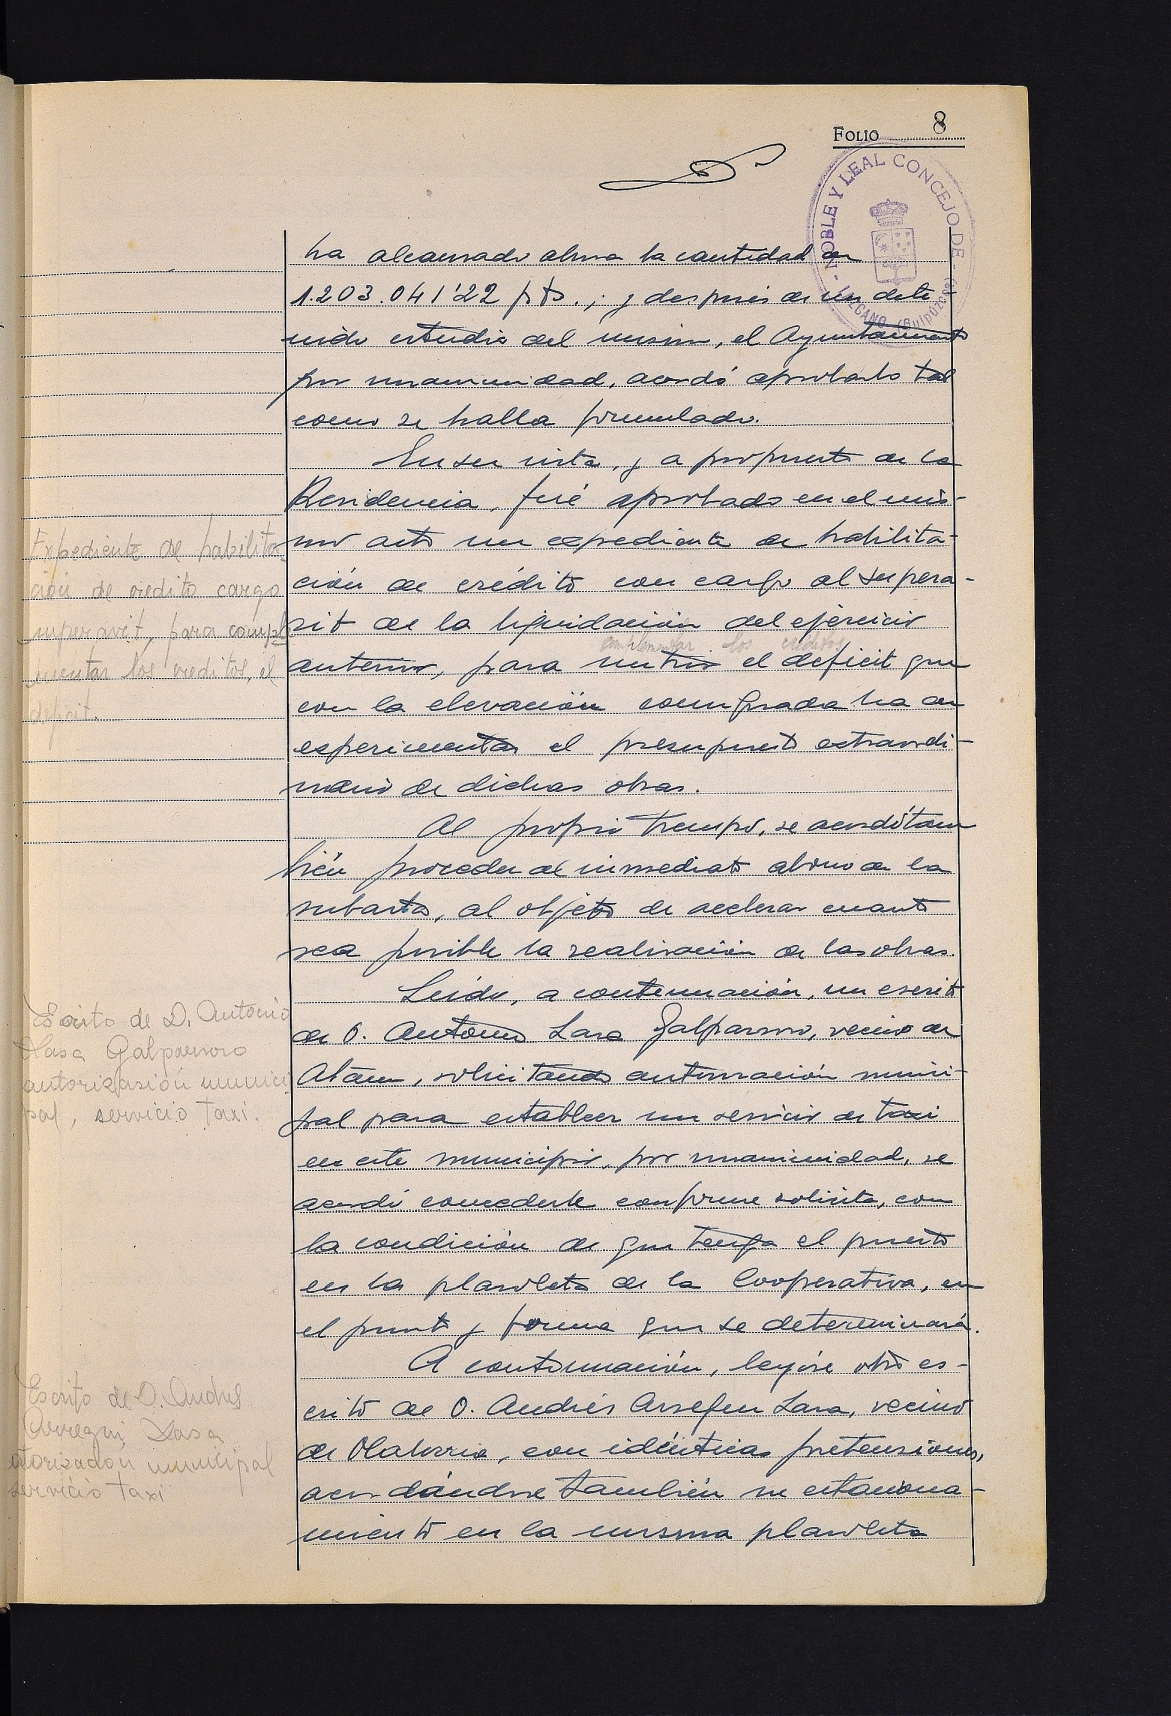 FOLIO 8
NOBLE Y LEAL CONCEJO DE LAZCANO (Guipúzcoa)
ha alcanzado ahora la cantidad de
1.203.041'22 pts.; y después de un dete-
nido estudio del mismo, el Ayuntamiento
por unanimidad, acordó aprobarlo tal
como se halla formulado.
En su vista, y a propuesta de la
Presidencia, fué aprobado en el mis-
mo acto un expediente de habilita-
ción de crédito con cargo al superá-
vit de la liquidación del ejercicio
complementar los creditos
anterior, para nutrir el déficit que
con la elevación comprada ha de
experimentar el presupuesto extraordi-
nario de dichas obras.
Al propio tiempo, se acordó tam
bién proceder al inmediato de la
subasta, al objeto de acelerar cuanto
sea posible la realización de las obras.
Leído, a continuación, un escrito
de D. Antonio Lasa Galparsoro, vecino de
Ataun, solicitando autorización munici-
pal para establecer un servicio de taxi
en este municipio, por unanimidad, se
acordó concederle conforme solicita, con
la condición de que tenga el puesto
en la plazoleta de la Cooperativa, en
el punto y forma que se determinará.
A continuación, leyóse otro es-
crito de D. Andrés Arregui Lasa, vecino
de Olaberria, con idénticas pretensiones,
acordándose también su estaciona-
miento en la misma plazoleta
Expediente de habilita-
ción de credito cargo
superavit para comple
mentar los creditos, el
déficit.
Escrito de D. Antonio
Lasa Galparsoro
autorización munici
pal, servicio taxi.
Escrito de D. Andrés
Arregui Lasa
utorización municipal
servicio taxi